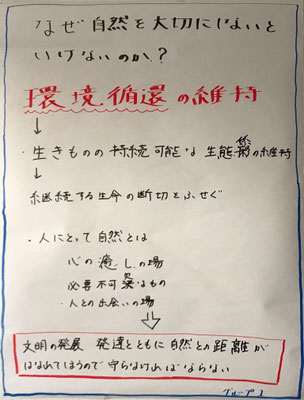 なぜ自然を大切にしないと
いけないのか?
環境循還の維持
↓
・生きものの持続可能な生態系の維持
↓
継続する生命の断切をふせぐ
・人にとって自然とは
心の癒しの場
必要不可欠なもの
・人との出会いの場
文明の発展 発達とともに自然との距離が
はなれてしまうので守らなければならない
グループ1